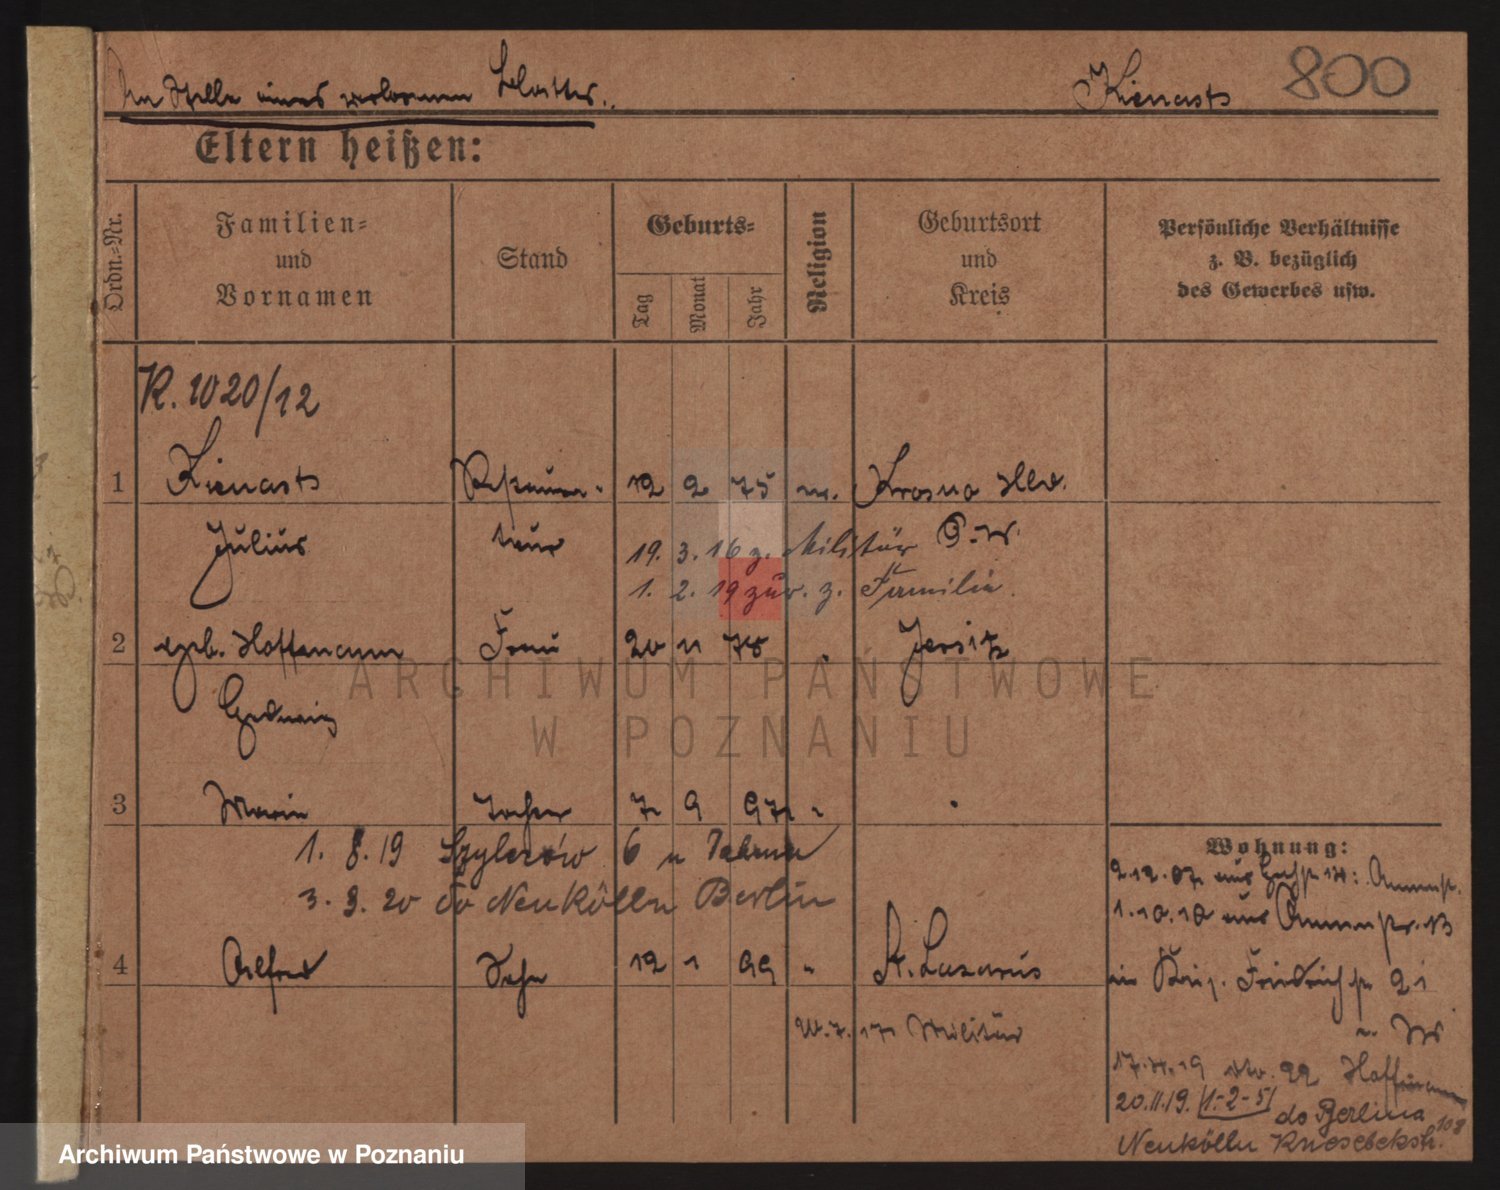 An Stelle eines verlorenen Blattes.
Kienast
800
Eltern heißen:
Ordn.=Nr.
Familien=
und
Vornamen
Stand
Geburts=
Tag
Monat
Jahr
Religion
Geburtsort
und
Kreis
Persönliche Verhältnisse
z. B. bezüglich
des Gewerbes usw.
K. 1020/12
1 Kienast Restaura- 12 2 75 Krosno
Julius teur
19. 3. 16 z. Militär
1. 2. 19 zur. z. Familie.
2 geb. Hoffmann Frau 20 11 78 Jersitz
Hedwig
ARCHIWUM PAŃSTWOWE
W POZNANIU
3 Marie Tochter 7 9 97
1. 8. 19
3. 3. 20 do Neukölln Berlin
4 Alfred Sohn 12 1 99 St. Lazarus
7. 17 Militär
Wohnung:
2.12.07 aus
1.10.10 aus
Friedrichstr 21
17. 19 22 Hoffmann
20.11.19. 1-2-5
do Berlina
Neukölln Knesebeckstr. 108
Archiwum Państwowe w Poznaniu